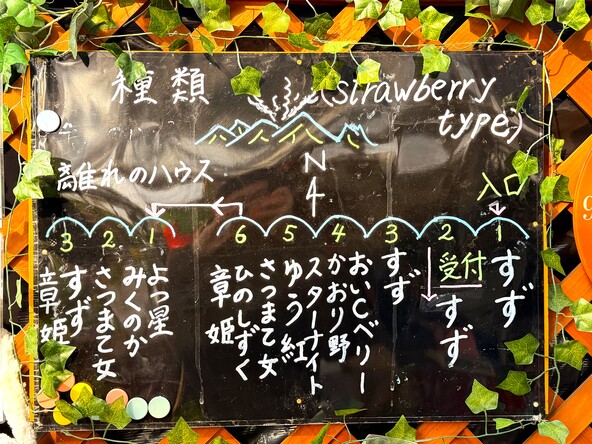 種類 (strawberry
type)
離れのハウス
N
4
入口
3 2 1 6 5 4 3 2 1
受付
すず
すず
すず
おいCベリー
かおり野
スターナイト
ゆう紅
さつまて女
ひのしずく
章姫
よつ星
みくのか
さつまて女
すず
章姫